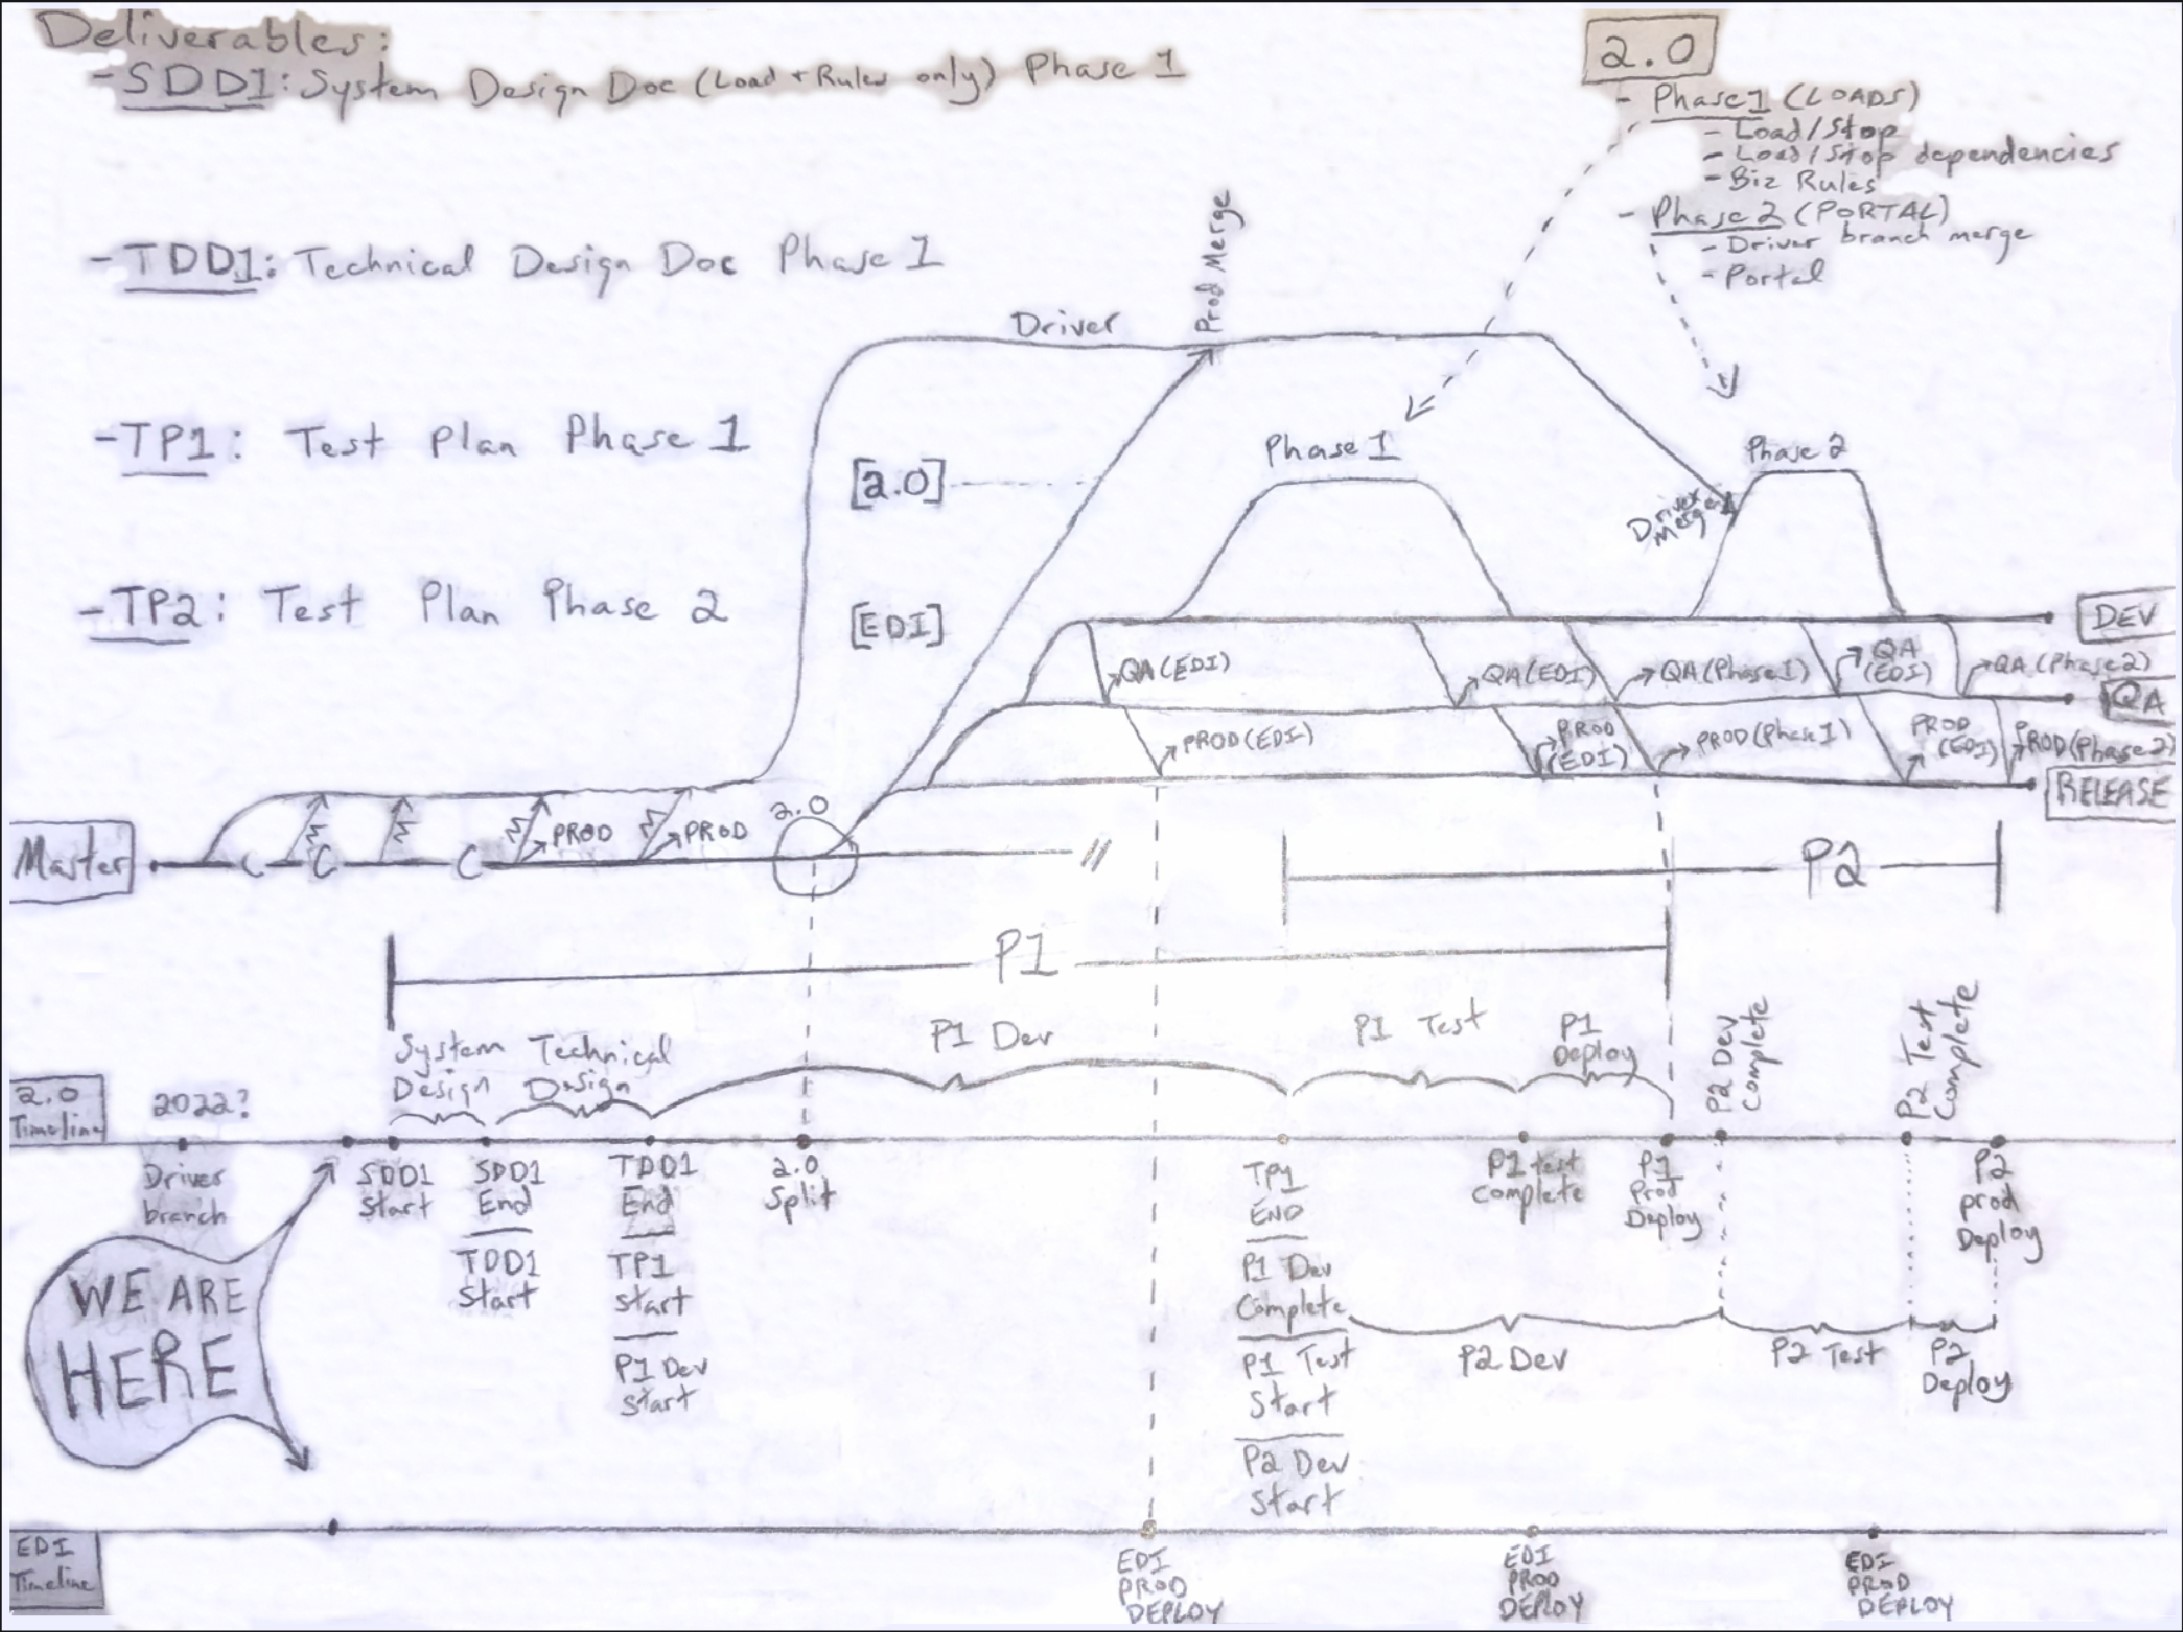 Deliverables:
- SDD1: System Design Doc (Load + Rules only) Phase 1
- TDD1: Technical Design Doc Phase 1
- TP1: Test Plan Phase 1
- TP2: Test Plan Phase 2
2.0
- Phase 1 (LOADS)
- Load/Stop
- Load/Stop dependencies
- Biz Rules
- Phase 2 (PORTAL)
- Driver branch merge
- Portal
Driver
Prod Merge
[2.0]
Phase 1
Phase 2
Driver
Merge
[EDI]
DEV
QA(EDI)
QA(EDI)
QA(Phase1)
QA
(EDI)
QA(Phase2)
QA
PROD(EDI)
PROD
(EDI)
PROD(Phase1)
PROD
(EDI)
PROD(Phase2)
RELEASE
2.0
PROD
PROD
Master
P2
P1
System
Design
Technical
Design
P1 Dev
P1 Test
P1
Deploy
P2 Dev
Complete
P2 Test
Complete
2.0
Timeline
2022?
Driver
branch
SDD1
Start
SDD1
End
TDD1
Start
TDD1
End
TP1
Start
P1 Dev
Start
2.0
Split
TP1
END
P1 Dev
Complete
P1 Test
Start
P2 Dev
Start
P1 test
Complete
P1
Prod
Deploy
P2
prod
Deploy
WE ARE
HERE
P2 Dev
P2 Test
P2
Deploy
EDI
Timeline
EDI
PROD
DEPLOY
EDI
PROD
DEPLOY
EDI
PROD
DEPLOY